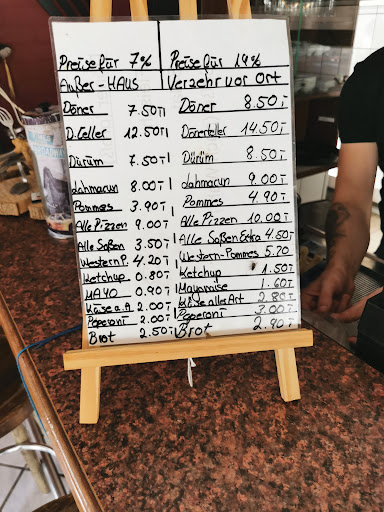 Preise für 7% Preise für 19%
Außer-HAUS Verzehr vor Ort
Döner 7.50 Döner 8.50
D.Teller 12.50 Dönerteller 14.50
Dürüm 7.50 Dürüm 8.50
dahmacun 8.00 dahmacun 9.00
Pommes 3.90 Pommes 4.90
Alle Pizzen 9.00 Alle Pizzen 10.00
Alle Soßen 3.50 Alle Soßen Extra 4.60
Western P. 4.20 Western-Pommes 5.70
Ketchup 0.80 Ketchup 1.50
MAYO 0.90 Mayonaise 1.60
Käse a.A. 2.00 Käse alles Art 2.80
Peperoni 2.00 Peperoni 3.00
Brot 2.50 Brot 2.90